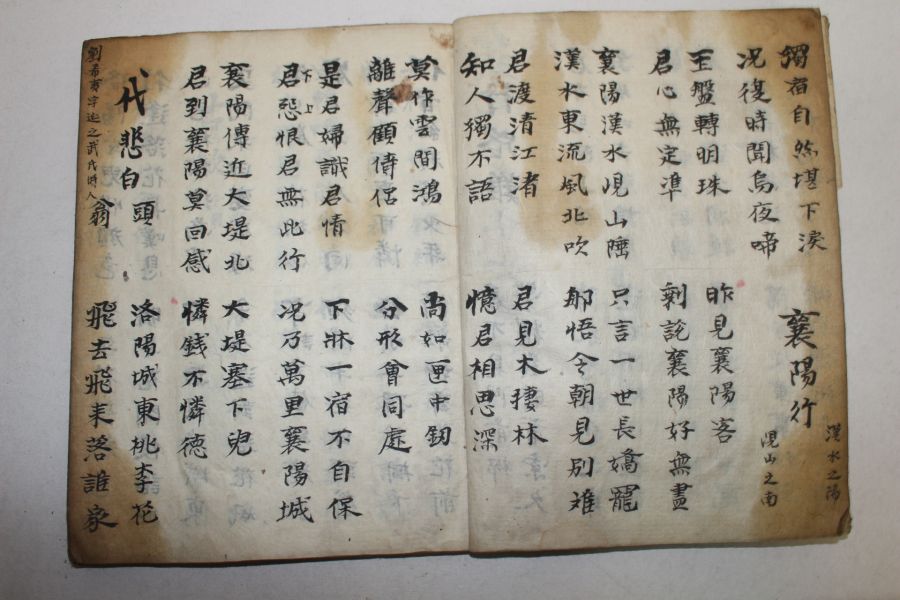 獨宿自然堪下淚
况復時聞烏夜啼
襄陽行
漢水之陽
峴山之南
玉盤轉明珠
君心無定準
昨見襄陽客
剩說襄陽好無盡
襄陽漢水峴山陲
漢水東流風北吹
只言一世長嬌寵
那悟今朝見別难
君渡清江渚
知人獨不語
君見木棲林
憶君相思深
莫作雲間鴻
離聲顧侍侶
尚如匣中釼
分形會同處
是君婦識君情
君怨恨君無此行
下上
下牀一宿不自保
况乃萬里襄陽城
襄陽傳近大堤北
君到襄陽莫回感
大堤塞下兒
憐錢不憐德
代悲白頭翁
劉希夷字延之武氏時人
洛陽城東桃李花
飛去飛来落誰家